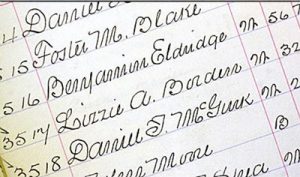 4 Daniel
15 Foster M. Blake
516 Benjamin Eldridge m 56
3517 Lizzie A. Borden m 32
3518 Daniel J. McGurk m 2
Moore